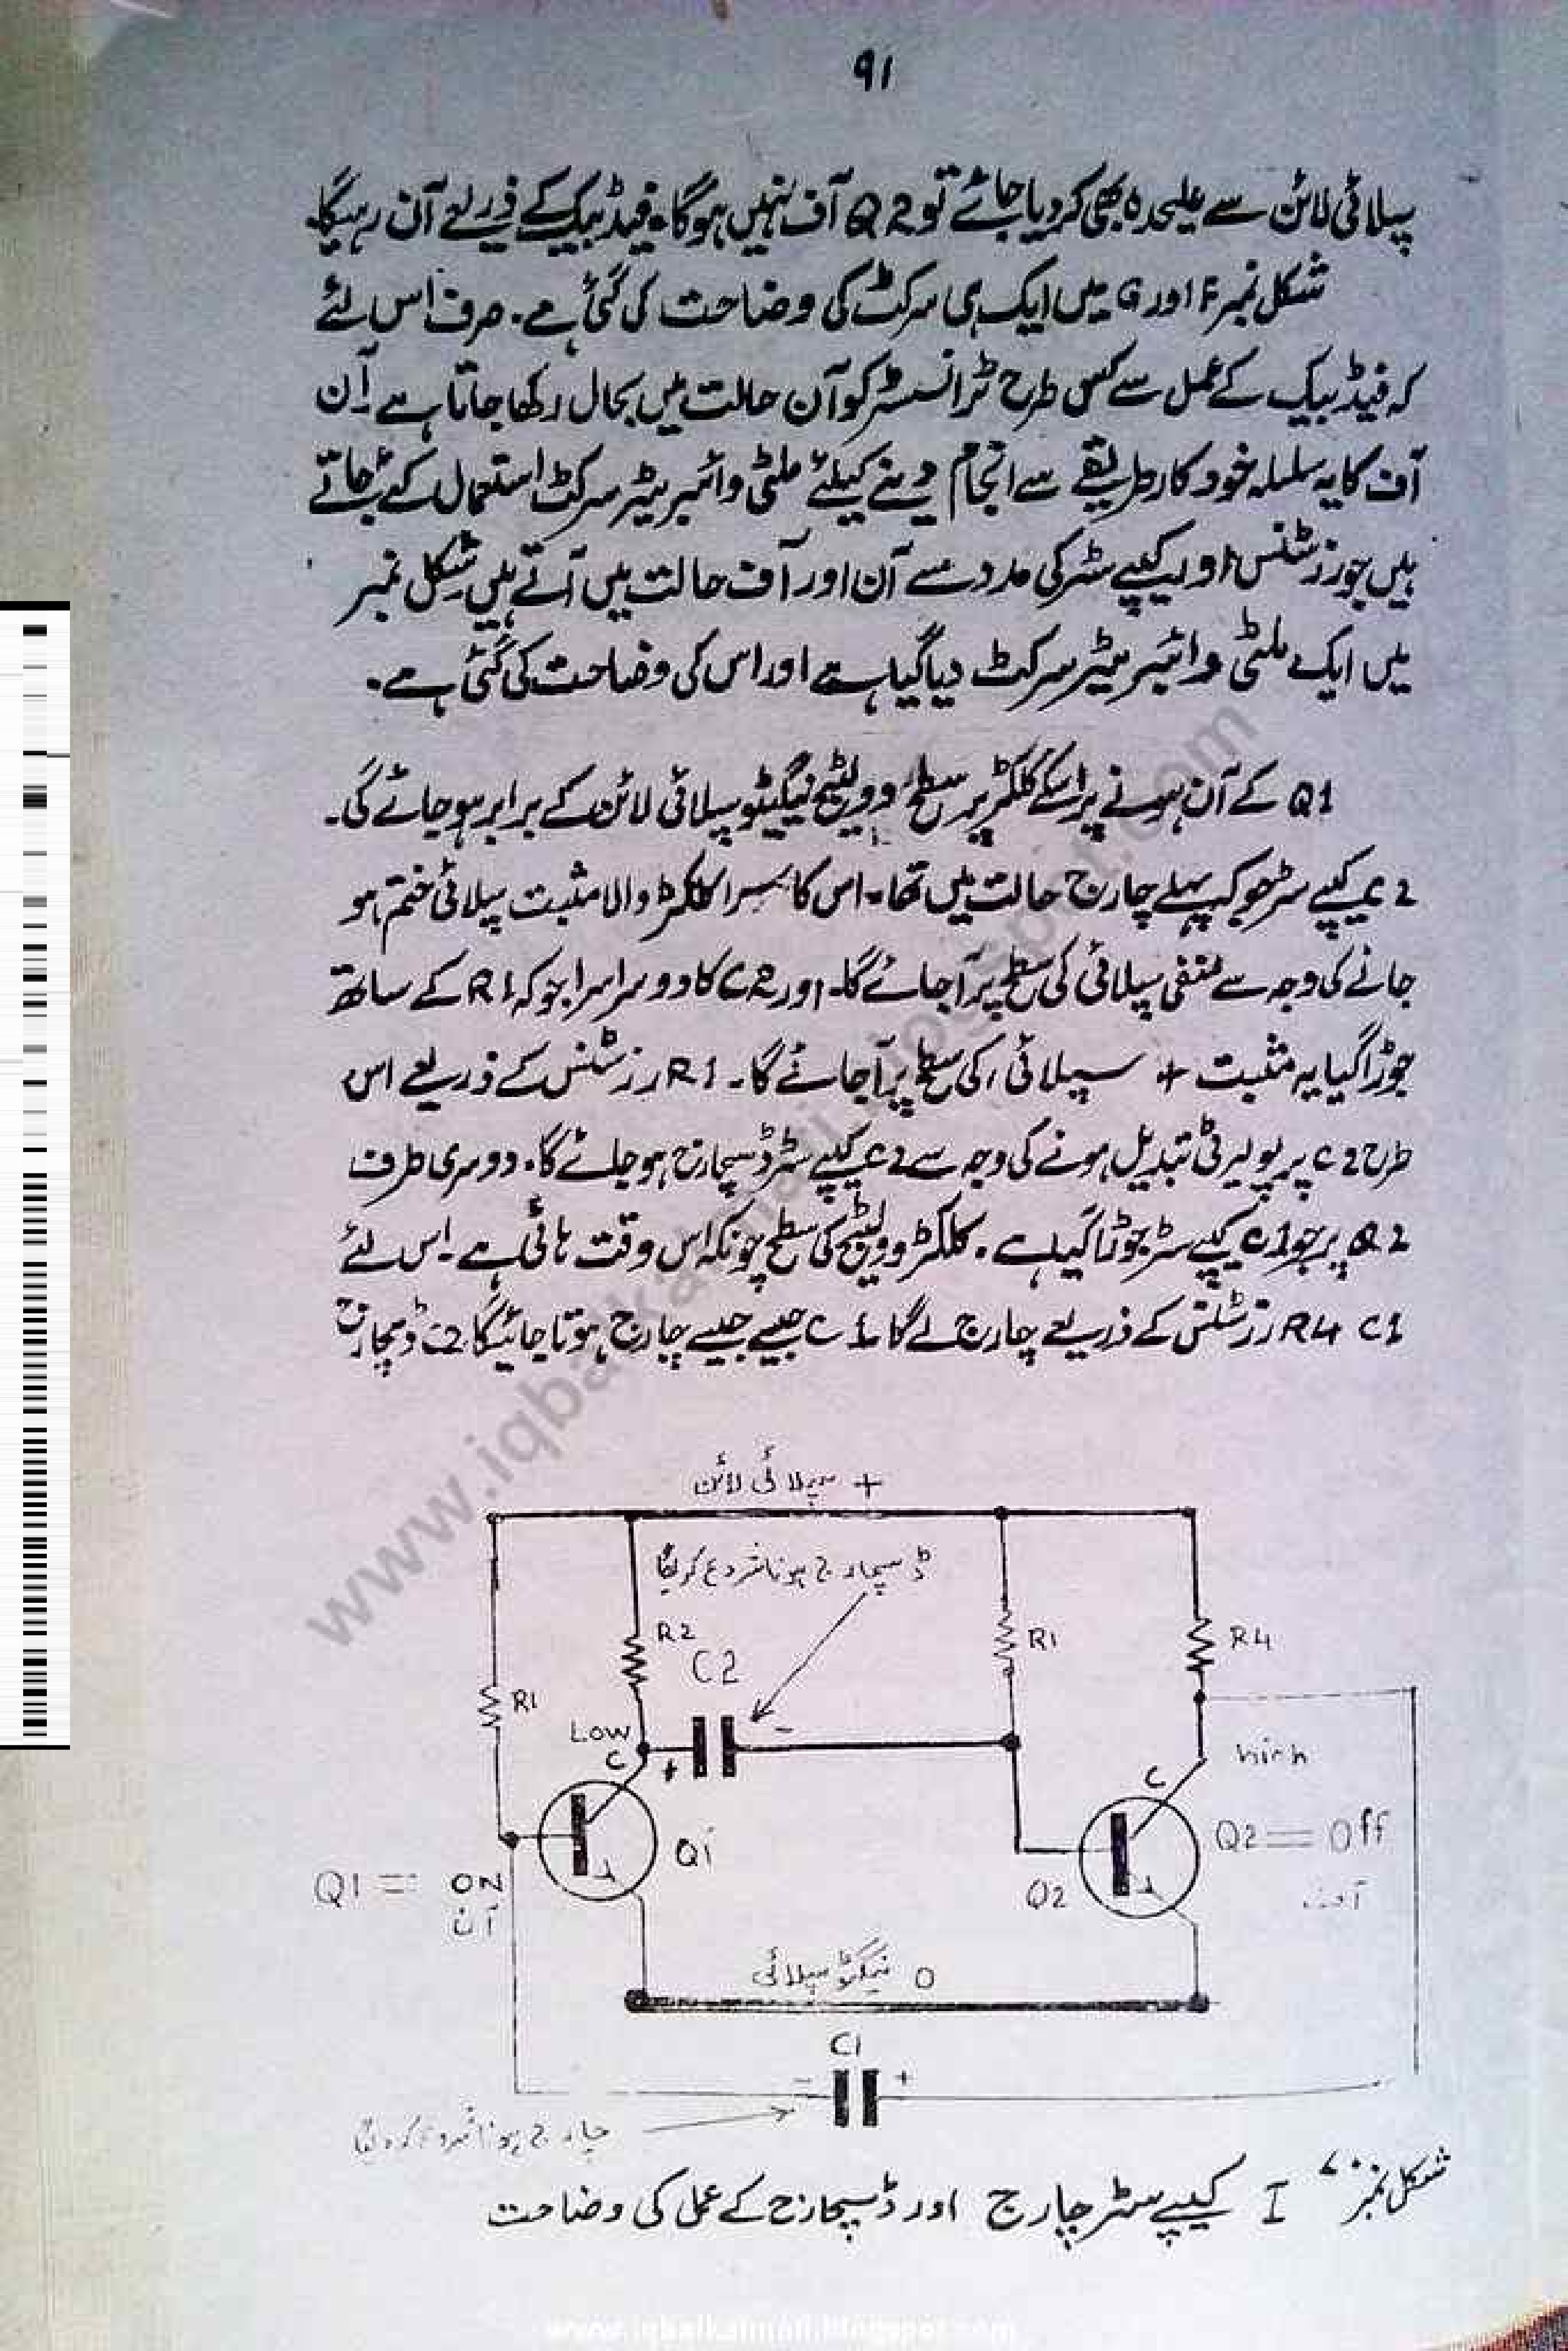 ۹۱
سپلائی لائن سے علیحدہ بھی کر دیا جائے تو Q2 آف نہیں ہوگا۔ فیڈ بیک کے ذریعے آن رہیگا۔
شکل نمبر F اور G میں ایک ہی سرکٹ کی وضاحت کی گئی ہے۔ صرف اس لئے
کہ فیڈ بیک کے عمل سے کس طرح ٹرانسسٹر کو آن حالت میں بحال رکھا جاتا ہے اِن
آف کا یہ سلسلہ خودکار طریقے سے انجام دینے کیلئے ملٹی وائبریٹر سرکٹ استعمال کئے جاتے
ہیں جو رزسٹنس اور کیپے سٹر کی مدد سے آن اور آف حالت میں آتے ہیں۔ شکل نمبر
میں ایک ملٹی وائبریٹر سرکٹ دیا گیا ہے اور اس کی وضاحت کی گئی ہے۔
Q1 کے آن ہونے پر اسکے کلکٹر پر سطح وولٹیج نیگیٹو سپلائی لائن کے برابر ہو جائے گی۔
C2 کیپے سٹر جو کہ پہلے چارج حالت میں تھا۔ اس کا سرا کلکٹر والا مثبت سپلائی ختم ہو
جانے کی وجہ سے منفی سپلائی کی سطح پر آ جائے گا۔ اور C2 کا دوسرا سرا جو کہ R1 کے ساتھ
جوڑا گیا یہ مثبت + سپلائی کی سطح پر آ جائے گا۔ R1 رزسٹنس کے ذریعے اس
طرح C2 پر پولیرٹی تبدیل ہونے کی وجہ سے C2 کیپے سٹر ڈسچارج ہو جائے گا۔ دوسری طرف
Q2 پر جو C1 کیپے سٹر جوڑا گیا ہے۔ کلکٹر وولٹیج کی سطح چونکہ اس وقت ہائی ہے۔ اس لئے
C1 R4 رزسٹنس کے ذریعے چارج لے گا C1 جیسے جیسے چارج ہوتا جائیگا C2 ڈسچارج
+ سپلائی لائن
ڈسچارج ہونا شروع کریگا
R2
C2
R1
R4
R1
Low
C
+
-
high
C
Q1
Q2 = Off
Q1 = ON
Q2
آف
آن
0 نیگیٹو سپلائی
C1
- +
چارج ہونا شروع کر دیگا
شکل نمبر ۷ I کیپے سٹر چارج اور ڈسچارج کے عمل کی وضاحت
www.iqbalkalmati.blogspot.com
www.iqbalkalmati.blogspot.com